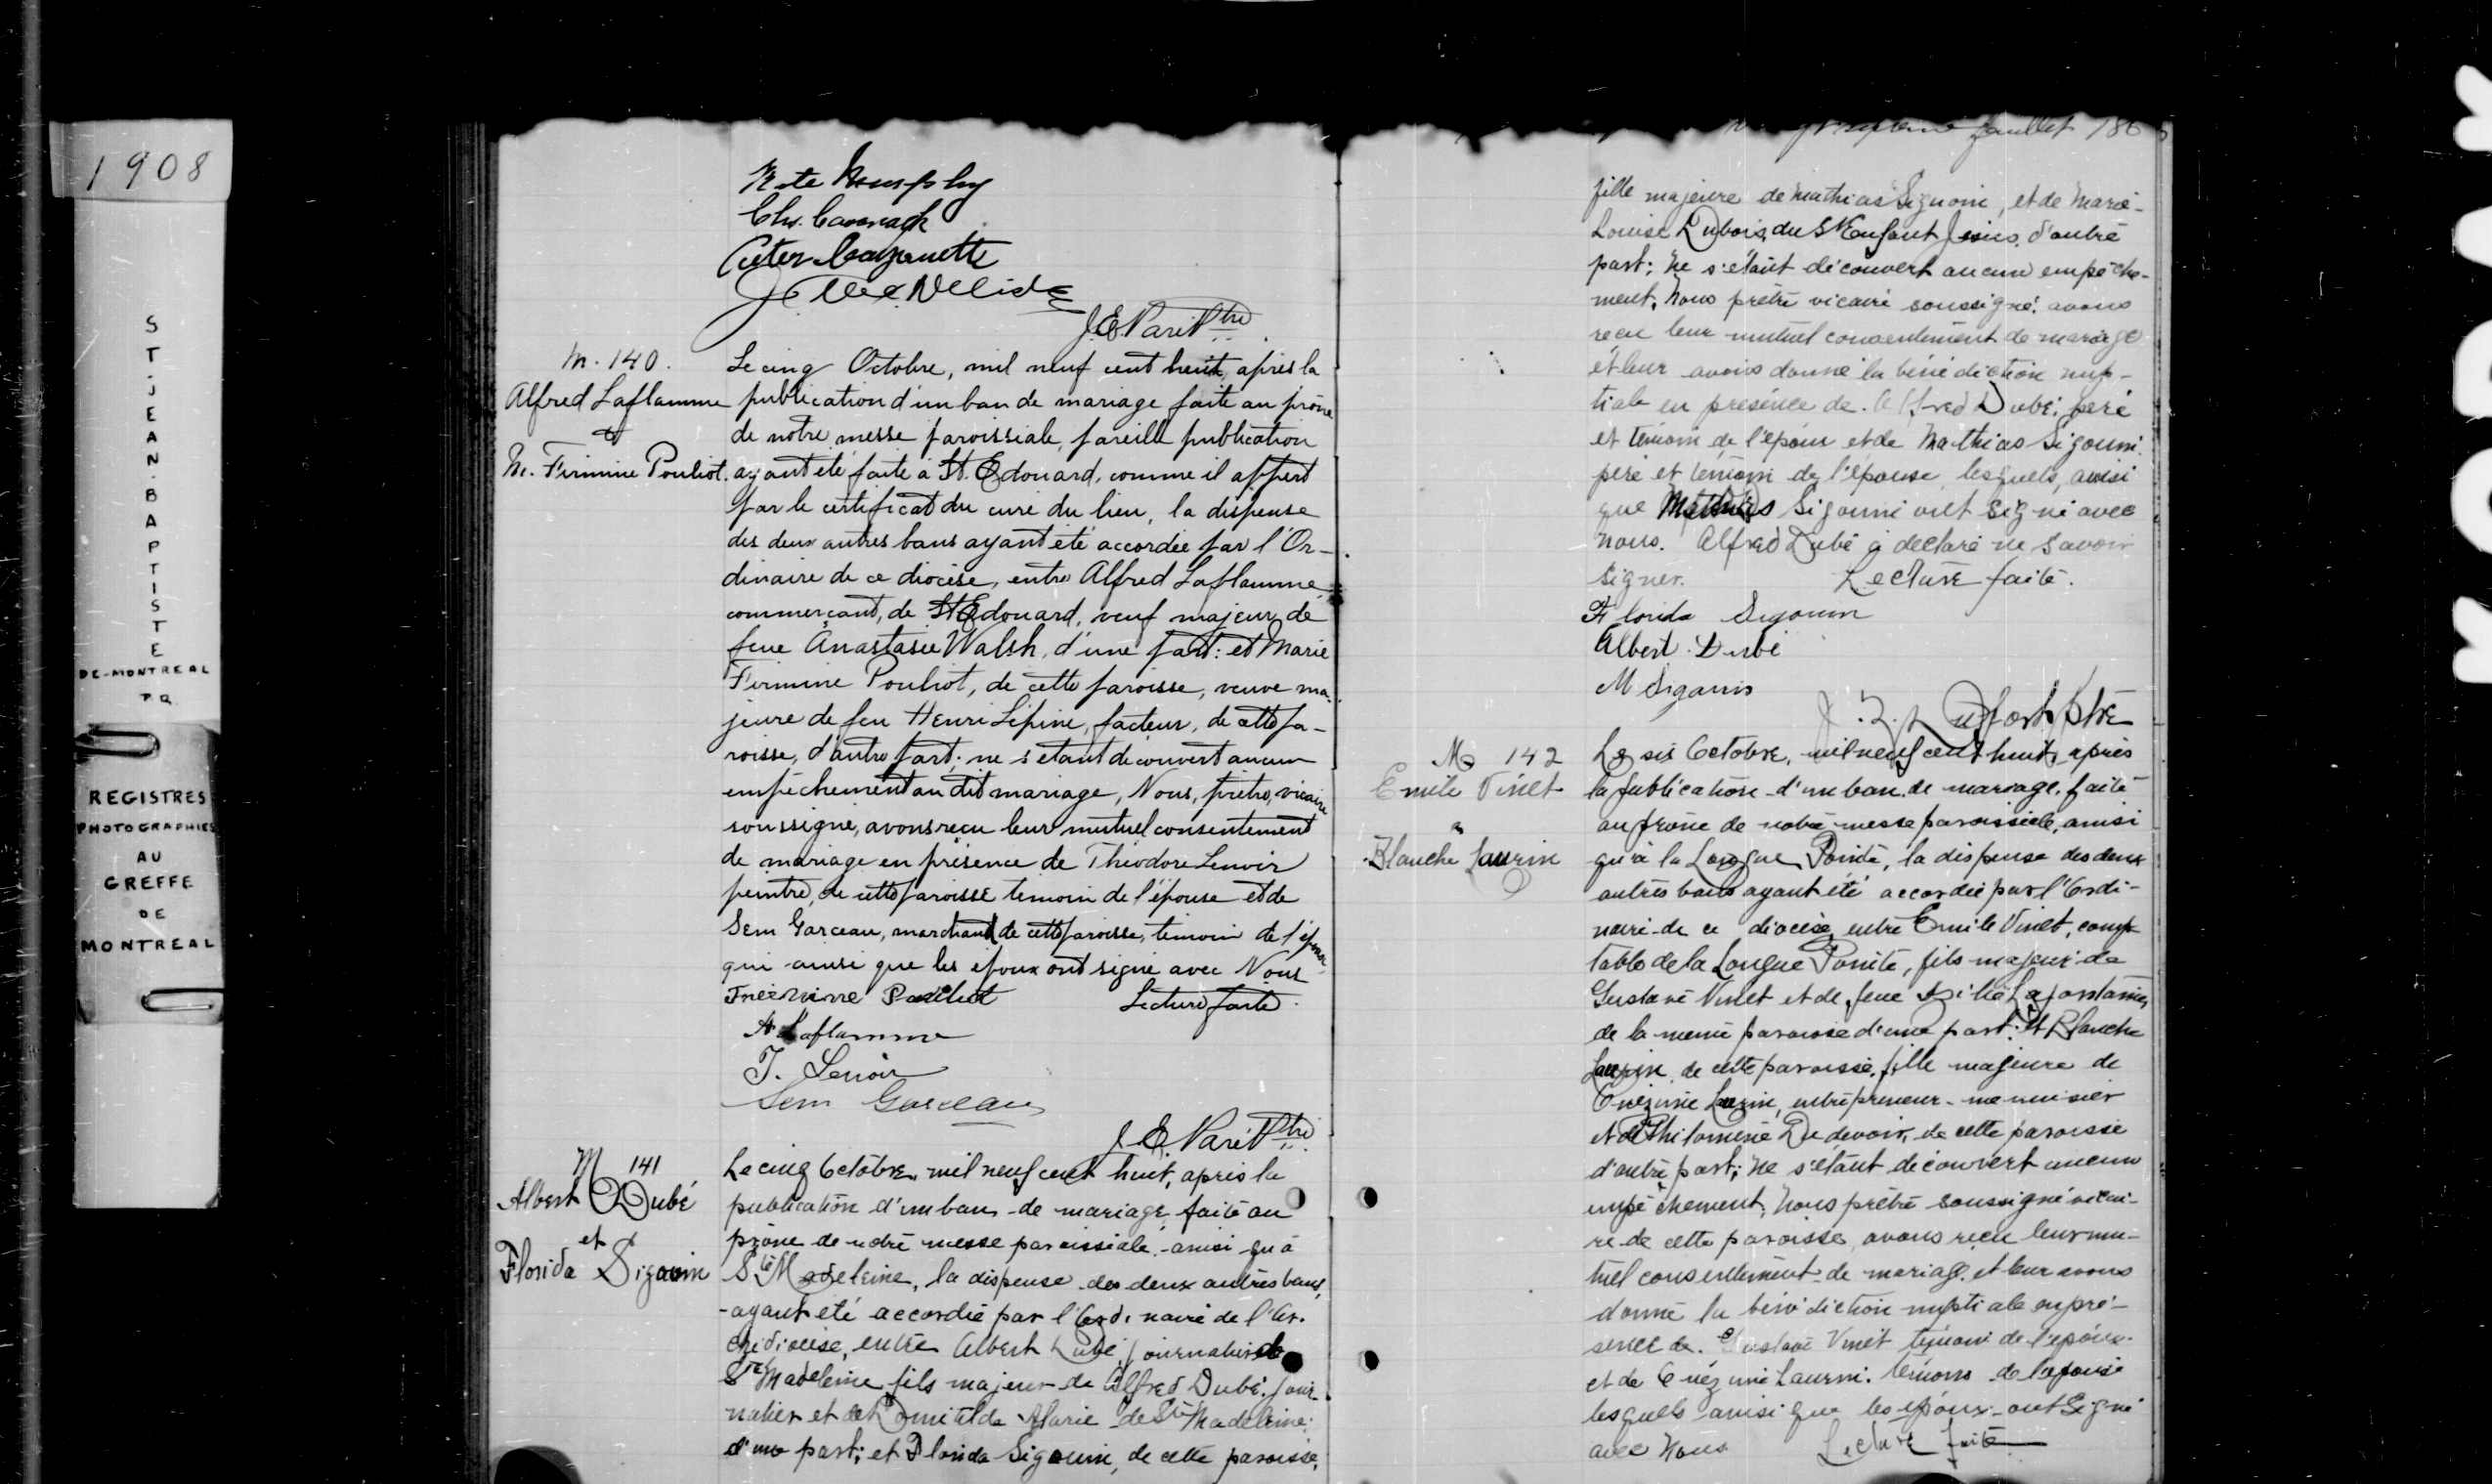 1908
ST-JEAN-BAPTISTE
DE-MONTREAL
P.Q.
REGISTRES
PHOTOGRAPHIES
AU
GREFFE
DE
MONTREAL
Chs. Cavanagh
Peter
J. E. Paré Ptre
M. 140.
Alfred Laflamme
&
M. Firmine Pouliot.
Le cinq Octobre, mil neuf cent huit, après la
publication d'un ban de mariage faite au prône
de notre messe paroissiale, pareille publication
ayant été faite à St. Edouard, comme il appert
par le certificat du curé du lieu, la dispense
des deux autres bans ayant été accordée par l'Or-
dinaire de ce diocèse, entre Alfred Laflamme,
commerçant, de St Edouard, veuf majeur de
feue Anastasie Walsh, d'une part: et Marie
Firmine Pouliot, de cette paroisse, veuve ma-
jeure de feu Henri Lépine, facteur, de cette pa-
roisse, d'autre part; ne s'étant découvert aucun
empêchement au dit mariage, Nous, prêtre, vicaire
soussigné, avons reçu leur mutuel consentement
de mariage en présence de Théodore Lenoir
peintre, de cette paroisse témoin de l'épouse et de
Sem Garceau, marchand de cette paroisse, témoin de l'époux
qui ainsi que les époux ont signé avec Nous
Lecture faite.
A Laflamme
T. Lenoir
Sem Garceau
J. E. Paré Ptre
M 141
Albert Dubé
et
Florida Sigouin
Le cinq Octobre, mil neuf cent huit, après la
publication d'un ban de mariage, faite au
prône de notre messe paroissiale, ainsi qu'à
Ste Madeleine, la dispense des deux autres bans,
ayant été accordée par l'Ordinaire de l'Ar-
chidiocèse, entre Albert Dubé, journalier de
Ste Madeleine fils majeur de Alfred Dubé, jour-
nalier et de Domitilde Marie de Ste Madeleine,
d'une part; et Florida Sigouin, de cette paroisse,
juillet 186
fille majeure de Mathias Sigouin, et de Marie-
Louise Dubois, du St Enfant Jésus, d'autre
part; Ne s'étant découvert aucun empêche-
ment, Nous prêtre vicaire soussigné, avons
reçu leur mutuel consentement de mariage
et leur avons donné la bénédiction nup-
tiale en présence de Alfred Dubé, père
et témoin de l'époux et de Mathias Sigouin,
père et témoin de l'épouse, lesquels, ainsi
que Sigouin ont signé avec
nous. Alfred Dubé a déclaré ne savoir
signer. Lecture faite.
Florida Sigouin
Albert Dubé
M Sigouin
Dufort Ptre
M 142
Emile Vinet
&
Blanche Laurin
Le six Octobre, mil neuf cent huit, après
la publication d'un ban de mariage, faite
au prône de notre messe paroissiale, ainsi
qu'à la Longue Pointe, la dispense des deux
autres bans ayant été accordée par l'Ordi-
naire de ce diocèse, entre Emile Vinet, comp-
table de la Longue Pointe, fils majeur de
Gustave Vinet et de feue Lafontaine,
de la même paroisse d'une part; Et Blanche
Laurin, de cette paroisse, fille majeure de
Onézime Laurin, entrepreneur-menuisier
et de Philomène Dedevoir, de cette paroisse
d'autre part; Ne s'étant découvert aucun
empêchement, Nous prêtre soussigné vicai-
re de cette paroisse, avons reçu leur mu-
tuel consentement de mariage, et leur avons
donné la bénédiction nuptiale en pré-
sence de Gustave Vinet témoin de l'époux
et de Onézime Laurin, témoin de l'épouse
lesquels ainsi que les époux ont signé
avec Nous Lecture faite